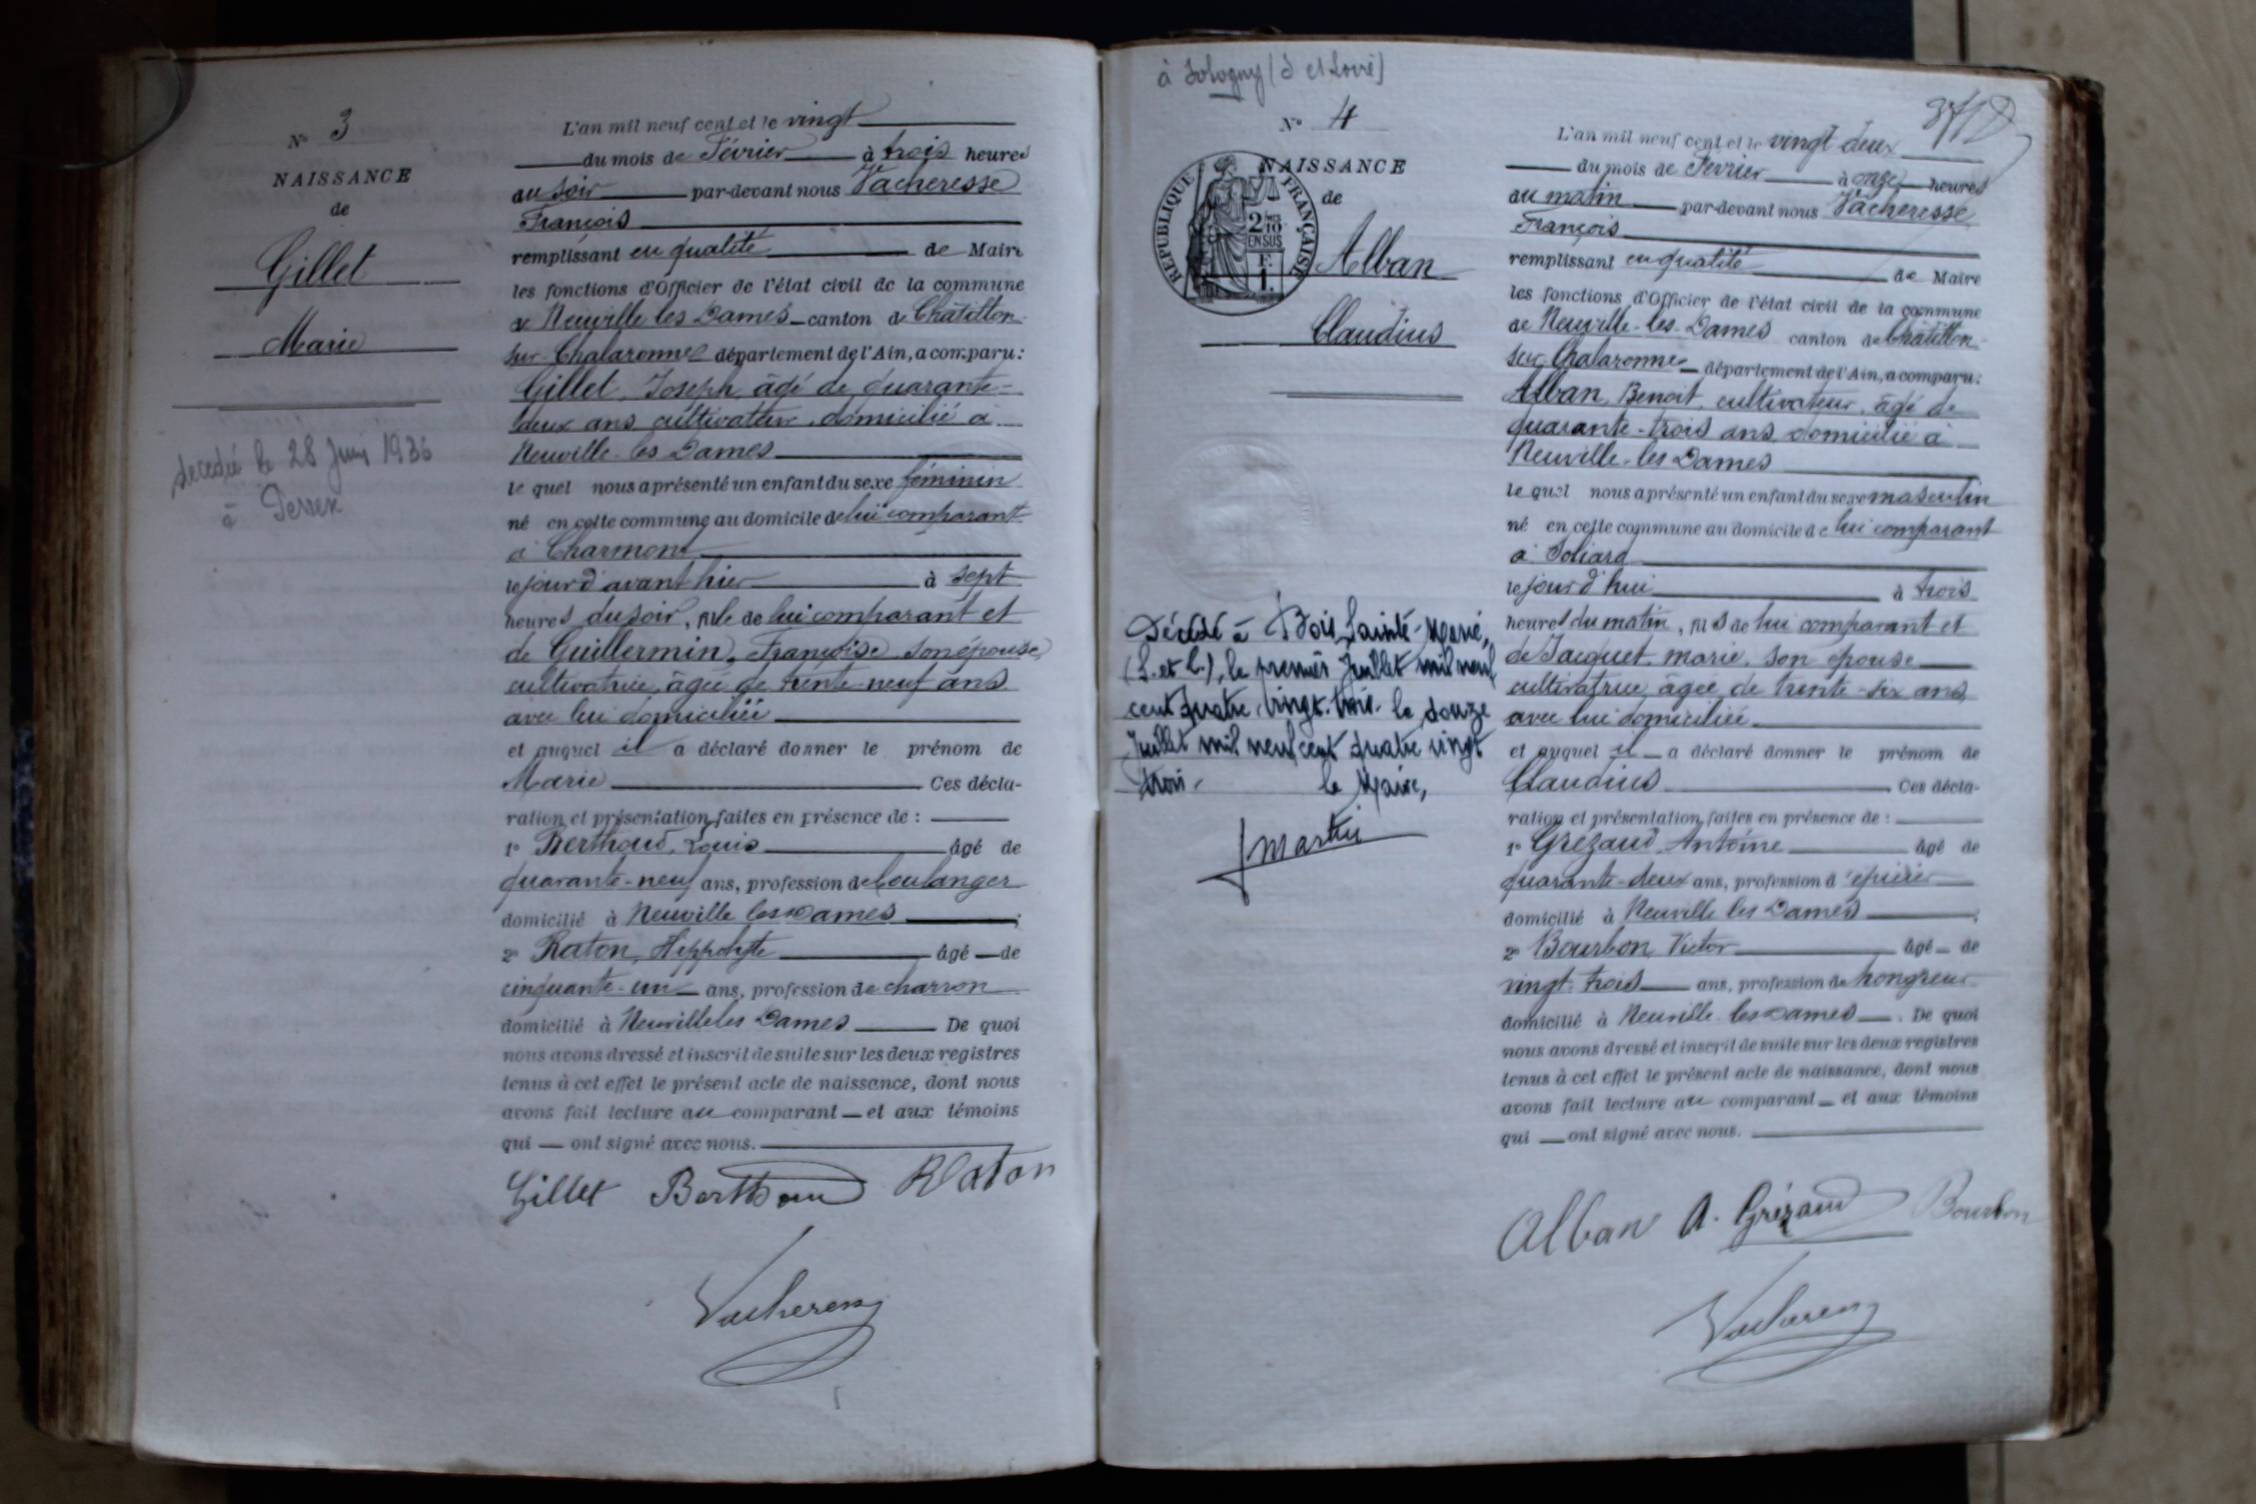 N° 3
NAISSANCE
de
Gillet
Marie
décédée le 28 Juin 1936
à Perrex
L'an mil neuf cent et le vingt
du mois de Février à trois heures
du soir par-devant nous Vacheresse
François
remplissant en qualité de Maire
les fonctions d'Officier de l'état civil de la commune
de Neuville les Dames canton de Châtillon
sur Chalaronne département de l'Ain, a comparu :
Gillet Joseph, âgé de quarante-
deux ans cultivateur, domicilié à
Neuville les Dames
le quel nous a présenté un enfant du sexe féminin
né en cette commune au domicile de lui comparant
à Charmont
le jour d'avant hier à sept
heures du soir, fille de lui comparant et
de Guillermin, Françoise son épouse
cultivatrice, âgée de trente-neuf ans
avec lui domiciliée
et auquel il a déclaré donner le prénom de
Marie Ces décla-
ration et présentation faites en présence de :
1° Berthoud, Louis âgé de
quarante-neuf ans, profession de boulanger
domicilié à Neuville les Dames ;
2° Raton, Hippolyte âgé de
cinquante-un ans, profession de charron
domicilié à Neuville les Dames De quoi
nous avons dressé et inscrit de suite sur les deux registres
tenus à cet effet le présent acte de naissance, dont nous
avons fait lecture au comparant et aux témoins
qui ont signé avec nous.
Gillet Berthoud Raton
Vacheresse
à Sologny (S et Loire)
N° 4
NAISSANCE
de
RÉPUBLIQUE FRANÇAISE
2/10
EN SUS
F.
1.
Alban
Claudius
Décédé à Bois Sainte-Marie,
(S. et L.), le premier Juillet mil neuf
cent quatre-vingt-trois. le douze
Juillet mil neuf cent quatre vingt
trois. le Maire,
J Martin
L'an mil neuf cent et le vingt deux
du mois de Février à onze heures
du matin par-devant nous Vacheresse
François
remplissant en qualité de Maire
les fonctions d'Officier de l'état civil de la commune
de Neuville-les-Dames canton de Châtillon
sur Chalaronne département de l'Ain, a comparu :
Alban, Benoit, cultivateur, âgé de
quarante-trois ans domicilié à
Neuville-les Dames
le quel nous a présenté un enfant du sexe masculin
né en cette commune au domicile de lui comparant
à Soliard
le jour d'hui à trois
heures du matin, fils de lui comparant et
de Jacquet, marie, son épouse
cultivatrice âgée de trente-six ans
avec lui domiciliée
et auquel il a déclaré donner le prénom de
Claudius Ces décla-
ration et présentation faites en présence de :
1° Grézaud Antoine âgé de
quarante-deux ans, profession d'épicier
domicilié à Neuville les Dames ;
2° Bourbon Victor âgé de
vingt-trois ans, profession de hongreur
domicilié à Neuville les Dames . De quoi
nous avons dressé et inscrit de suite sur les deux registres
tenus à cet effet le présent acte de naissance, dont nous
avons fait lecture au comparant et aux témoins
qui ont signé avec nous.
Alban A. Grézaud Bourbon
Vacheresse